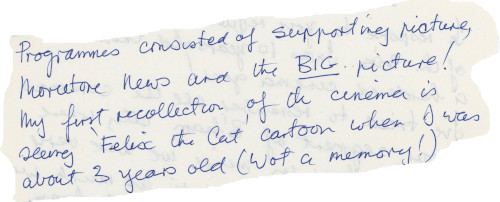 Programmes consisted of supporting picture,
Movietone News and the BIG picture!
My first recollection of th cinema is
seeing 'Felix the Cat' cartoon when I was
about 3 years old (Wot a memory!)